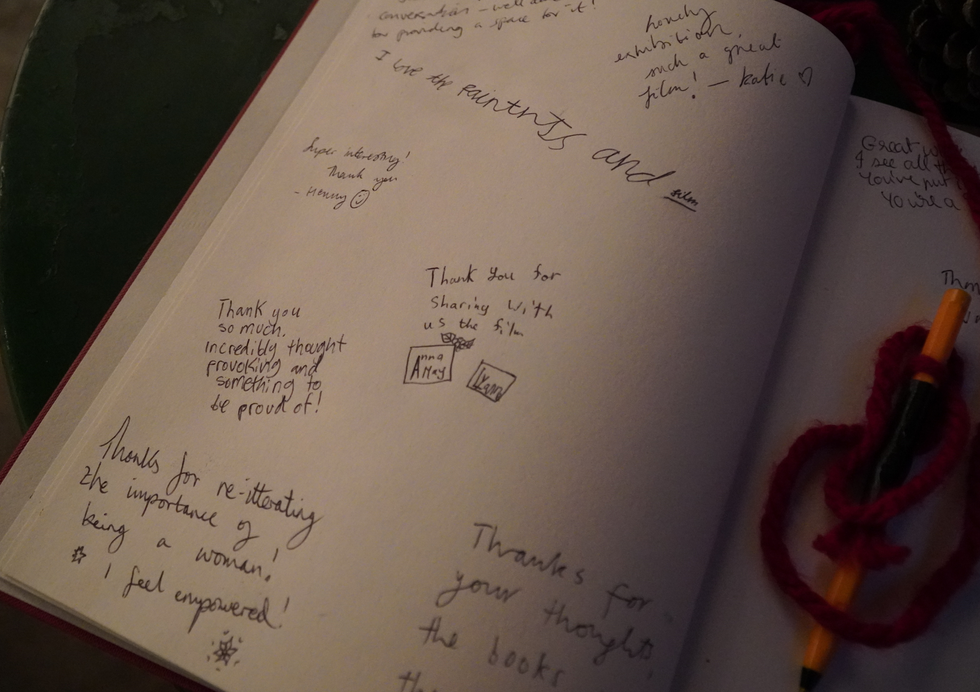 conversation – well
for providing a space for it!
lovely
exhibition,
such a great
film! – Katie ♡
I love the PaintNTIs and film
Super interesting!
Thank you
- Henny ☺
Thank you for
Sharing with
us the film
Anna
May
Thank you
so much.
incredibly thought
provoking and
something to
be proud of!
Thanks for re-itterating
the importance of
being a woman!
I feel empowered!
Thanks for
your thoughts
the books
Great
I see all
You've put
You're a